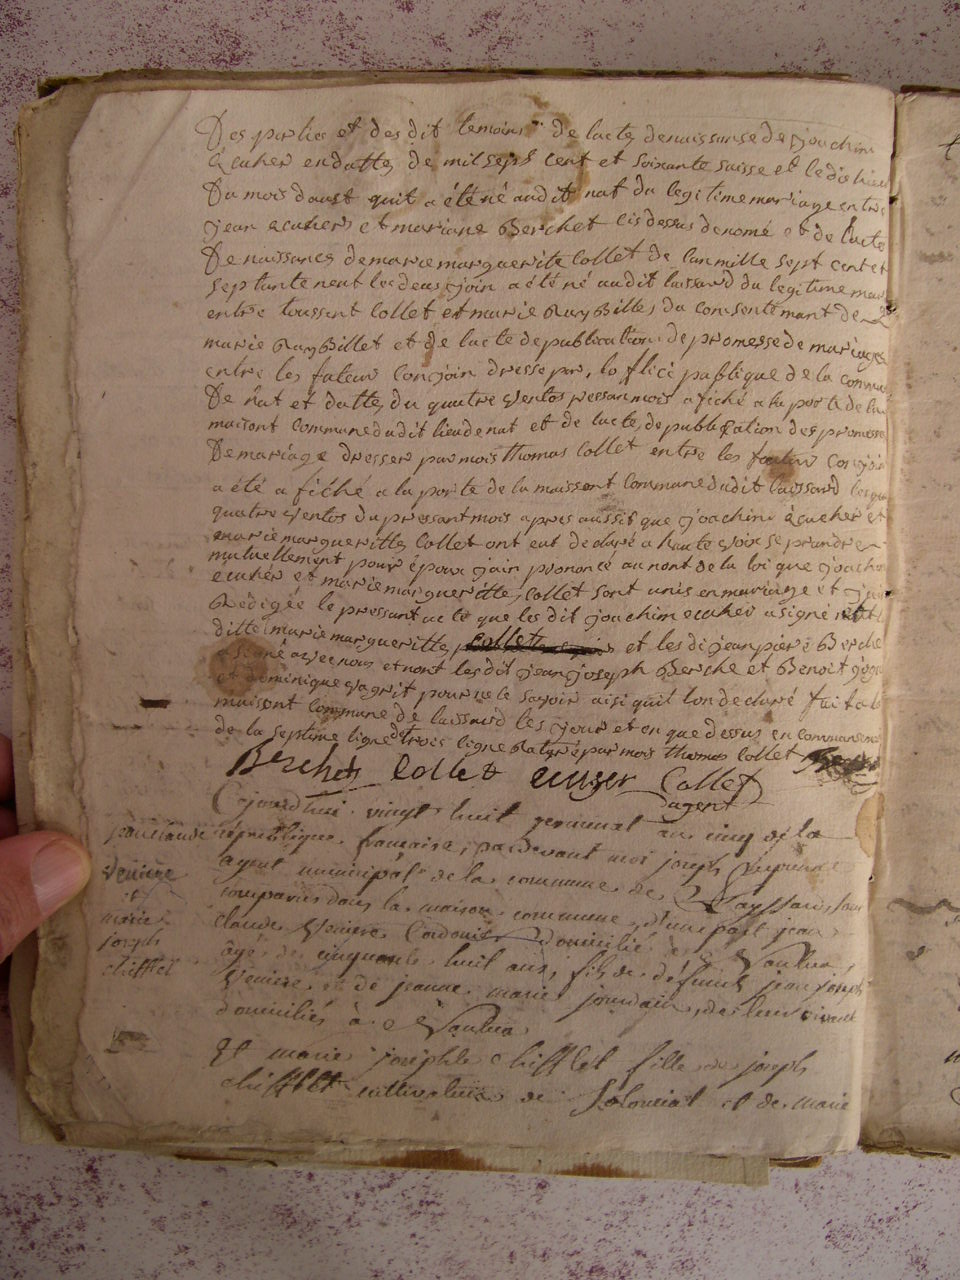 Des parlier et des dit temoins de lacte denaissanse de joachim
écuher en datte de mil seph cent et soixante saisse et le dishieu
Du mois daust quit a été né audit nat du legitime mariage entre
jean ecuhers et mariane Berchet cis dessus denomé et de lacte
De naissances demariemargueritte Collet de lan mille sept cent et
septante neuf les deus join a été né audit laissard du legitime mar
entre toussent Collet et marie RuyBillet du consentemant de
marie RuyBillet et de lacte depublication de promesse de mariages
entre les futeur conjoin dresse par lofflicé publique de la commu
De nat et datte du quatre ventos pressan mois afiché a la porte de la
maisont commune dudit lieu de nat et de lacte de publication des promesse
De mariage dresser par mois thomas Collet entre les conjoin
a été a fiché a la porte de la maissont Commune dudit laissard
quatre ventos du pressant mois apres aussis que joachim écucher et
marie margueritte Collet ont eut declaré a haute voix se prandre
mutuellement pour époux jain prononcé au nont de la loi que joachim
écuhér et mariemargueritte Collet sont unis en mariage et jai
Redigée le pressant acte que les dit joachim ecuher a signé et
ditte marie margueritte et les di jeanpière Berche
a signé avec nous et nont les dit jean joseph Berche et Benoit
et dominique vagrit pour ne le savoir aisi quil lon declaré fait a la
maissont Commune de laissard les jour et en que dessus en commansen
de la septime ligne et trois ligne par mois thomas Collet
Berchet Collet ecuyer Collet
agent
Cejourdhui vingt huit germinal an cinq de la
république française, pardevant moi joseph
agent municipal de la commune de Layssard, sont
comparus dans la maison commune, d'une part jean
claude Veniere Cordonier domicilié à Vaulua,
âgé de cinquante huit ans, fils de défunts jean joseph
Veniere et de jeanne marie jourdain, de leur vivant
domiciliés à Vaulua
jean claude
Veniere
et
marie
joseph
chifflet
Et marie josephte chifflet fille de joseph
chifflet cultivateur de et de marie